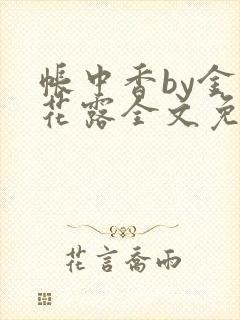 帐中香by金
花露全文免
花言喬雨